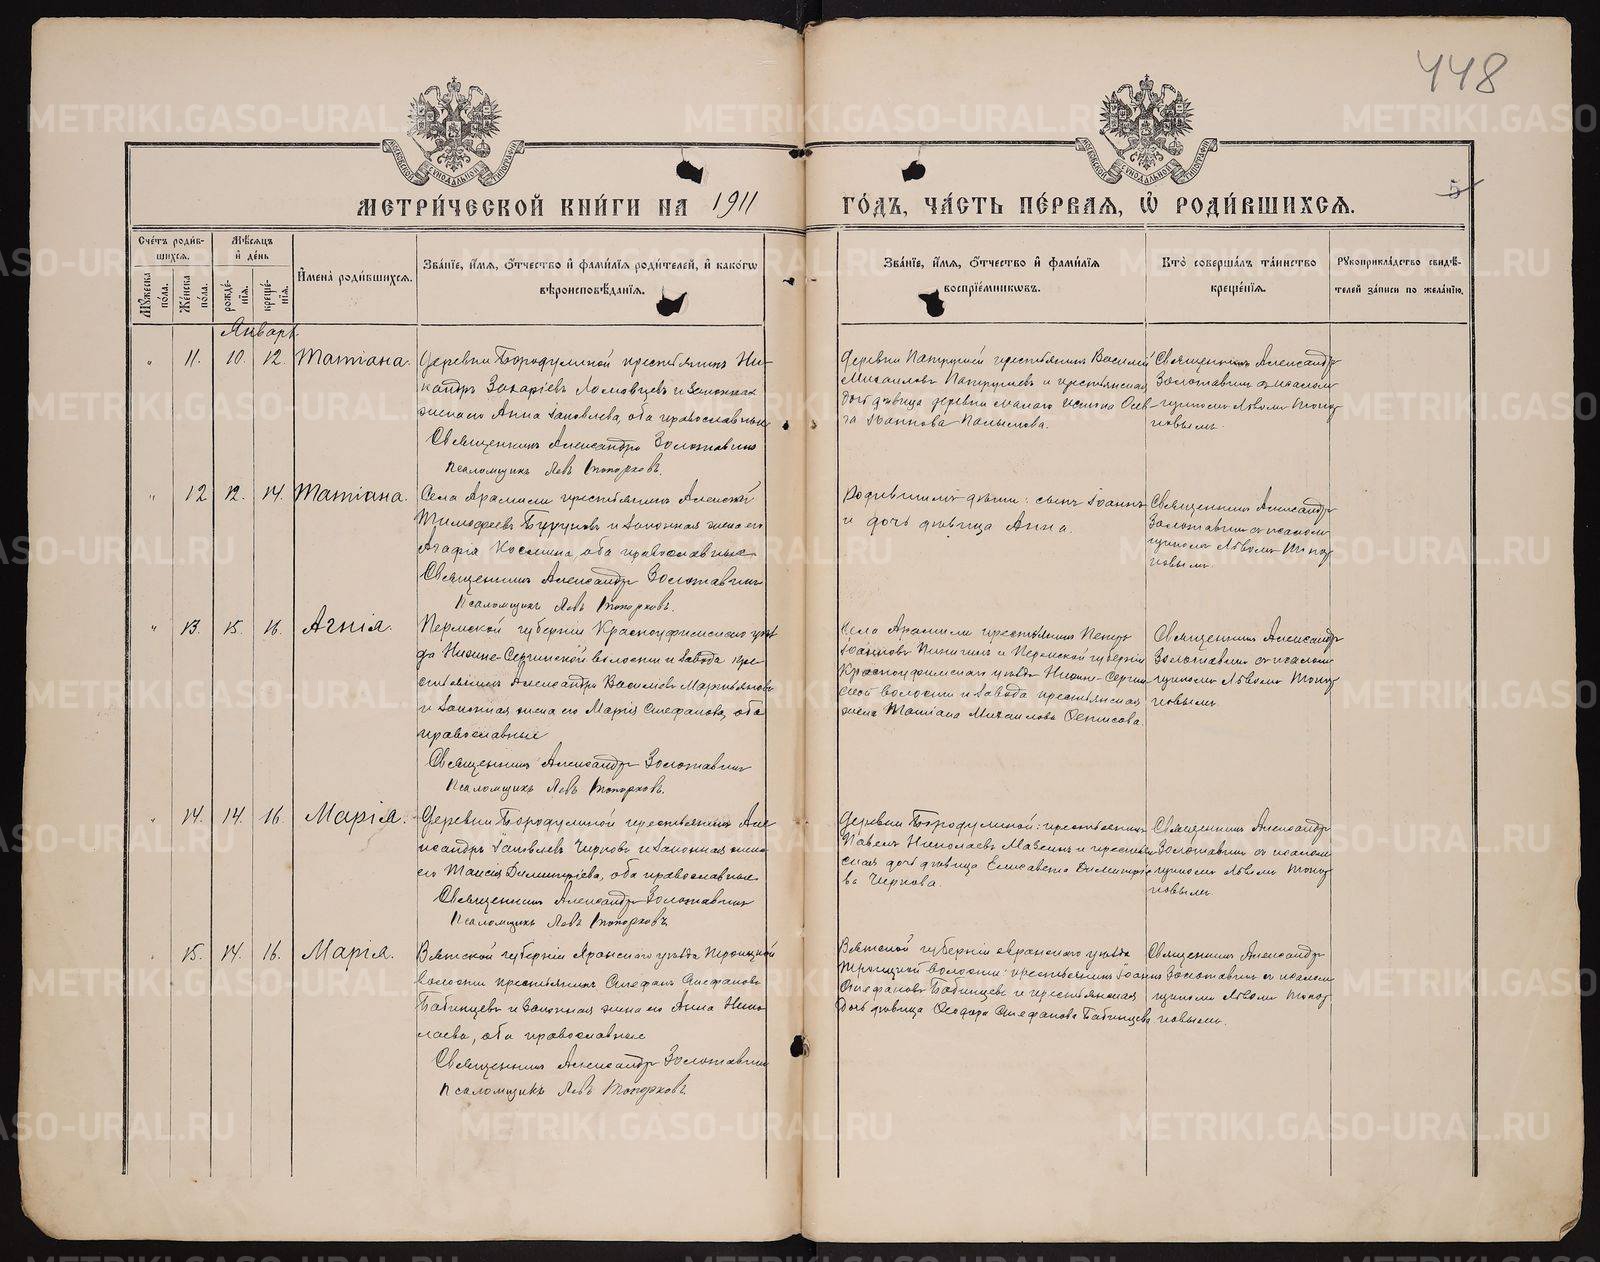 448
МОСКОВСКОЙ СѴНОДАЛЬНОЙ ТИПОГРАФІИ
МОСКОВСКОЙ СѴНОДАЛЬНОЙ ТИПОГРАФІИ
МЕТРИ́ЧЕСКОЙ КНИ́ГИ НА 1911
ГО́ДЪ, ЧА́СТЬ ПЕ́РВАЯ, Ѡ РОДИ́ВШИХСЯ.
5
Сче́тъ роди́в-
шихся.
Мꙋ́жеска по́ла.
Же́нска по́ла.
Мѣ́сяцъ и де́нь
рожде́нія.
креще́нія.
Имена̀ роди́вшихся.
Зва́ніе, и́мя, о́тчество и фами́лія роди́телей, и како́гѡ
вѣроисповѣ́данія.
Зва́ніе, и́мя, о́тчество и фами́лія
воспріе́мникѡвъ.
Кто̀ соверша́лъ та́инство
креще́нія.
Рꙋкоприкла́дство свидѣ́-
телей за́писи по жела́нію.
Январь
" 11. 10. 12. Татіана.
Деревни Бородулиной крестьянинъ Ни-
кандръ Захаріевъ Ломовцевъ и законная
жена его Анна Іаковлева, оба православные
Священникъ Александръ Золотавинъ
Псаломщикъ Левъ Топорковъ.
Деревни Патрушей крестьянинъ Василій
Михаиловъ Патрушевъ и крестьянская
дочь дѣвица деревни малаго Истока
Іоаннова Палымова.
Священникъ Александръ
Золотавинъ съ псалом-
щикомъ Львомъ Топор-
ковымъ.
" 12 12. 14. Татіана.
Села Арамили крестьянинъ Алексѣй
Тимофеевъ и законная жена его
Агафія Космина, оба православные
Священникъ Александръ Золотавинъ
Псаломщикъ Левъ Топорковъ.
Родившихъ дѣти: сынъ Іоаннъ
и дочь дѣвица Анна.
Священникъ Александръ
Золотавинъ съ псалом-
щикомъ Львомъ Топор-
ковымъ.
" 13. 15. 16. Агнія.
Пермской губерніи Красноуфимскаго уѣз-
да Нижне-Сергинской волости и завода кре-
стьянинъ Александръ Василіевъ Мартьяновъ
и законная жена его Марія Стефанова, оба
православные
Священникъ Александръ Золотавинъ
Псаломщикъ Левъ Топорковъ.
Села Арамили крестьянинъ Петръ
Іоанновъ и Пермской губерніи
Красноуфимскаго уѣзда Нижне-Сергин-
ской волости и завода крестьянская
жена Татіана Михаилова
Священникъ Александръ
Золотавинъ съ псалом-
щикомъ Львомъ Топор-
ковымъ.
" 14. 14. 16. Марія.
Деревни Бородулиной крестьянинъ Але-
ксандръ Іаковлевъ Чирковъ и законная жена
его Таисія Димитріева, оба православные
Священникъ Александръ Золотавинъ
Псаломщикъ Левъ Топорковъ
Деревни Бородулиной: крестьянинъ
Павелъ Николаевъ Мазеинъ и крестьян-
ская дочь дѣвица Елисавета Димитріе-
ва Чиркова.
Священникъ Александръ
Золотавинъ съ псалом-
щикомъ Львомъ Топор-
ковымъ.
" 15. 14. 16. Марія.
Вятской губерніи Яранскаго уѣзда Троицкой
волости крестьянинъ Стефанъ Стефановъ
Бабинцевъ и законная жена его Анна Нико-
лаева, оба православные
Священникъ Александръ Золотавинъ
Псаломщикъ Левъ Топорковъ.
Вятской губерніи Яранскаго уѣзда
Троицкой волости: крестьянинъ Іоаннъ
Стефановъ Бабинцевъ и крестьянская
дочь дѣвица Ѳеодора Стефанова Бабинцева
Священникъ Александръ
Золотавинъ съ псалом-
щикомъ Львомъ Топор-
ковымъ.
METRIKI.GASO-URAL.RU